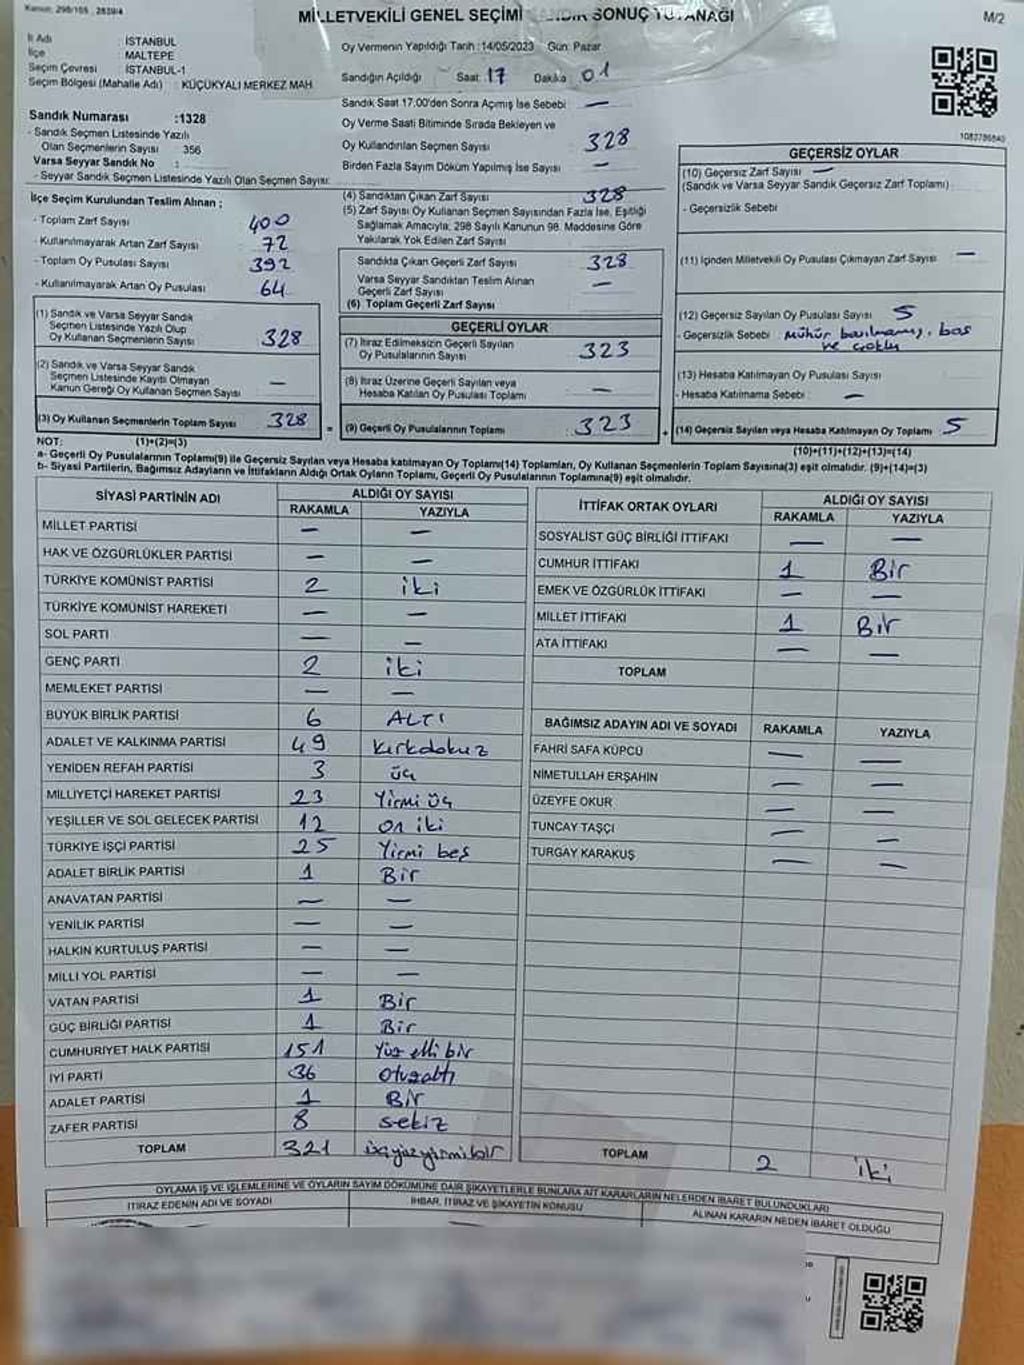 Kanun: 298/105, 2839/4
MİLLETVEKİLİ GENEL SEÇİMİ SANDIK SONUÇ TUTANAĞI
M/2
İl Adı : İSTANBUL
İlçe : MALTEPE
Seçim Çevresi : İSTANBUL-1
Seçim Bölgesi (Mahalle Adı) : KÜÇÜKYALI MERKEZ MAH.
Oy Vermenin Yapıldığı Tarih :14/05/2023 Gün: Pazar
Sandığın Açıldığı Saat: 17 Dakika : 01
Sandık Saat 17.00'den Sonra Açımış İse Sebebi : —
Oy Verme Saati Bitiminde Sırada Bekleyen ve
Oy Kullandırılan Seçmen Sayısı : 328
Birden Fazla Sayım Döküm Yapılmış İse Sayısı : —
Sandık Numarası :1328
- Sandık Seçmen Listesinde Yazılı
Olan Seçmenlerin Sayısı : 356
Varsa Seyyar Sandık No :
- Seyyar Sandık Seçmen Listesinde Yazılı Olan Seçmen Sayısı:
İlçe Seçim Kurulundan Teslim Alınan ;
- Toplam Zarf Sayısı : 400
- Kullanılmayarak Artan Zarf Sayısı : 72
- Toplam Oy Pusulası Sayısı : 392
- Kullanılmayarak Artan Oy Pusulası : 64
(1) Sandık ve Varsa Seyyar Sandık
Seçmen Listesinde Yazılı Olup
Oy Kullanan Seçmenlerin Sayısı : 328
(2) Sandık ve Varsa Seyyar Sandık
Seçmen Listesinde Kayıtlı Olmayan
Kanun Gereği Oy Kullanan Seçmen Sayısı : —
(3) Oy Kullanan Seçmenlerin Toplam Sayısı : 328
(4) Sandıktan Çıkan Zarf Sayısı : 328
(5) Zarf Sayısı Oy Kullanan Seçmen Sayısından Fazla İse, Eşitliği
Sağlamak Amacıyla, 298 Sayılı Kanunun 98. Maddesine Göre
Yakılarak Yok Edilen Zarf Sayısı :
Sandıkta Çıkan Geçerli Zarf Sayısı : 328
Varsa Seyyar Sandıktan Teslim Alınan
Geçerli Zarf Sayısı : —
(6) Toplam Geçerli Zarf Sayısı :
GEÇERLİ OYLAR
(7) İtiraz Edilmeksizin Geçerli Sayılan
Oy Pusulalarının Sayısı : 323
(8) İtiraz Üzerine Geçerli Sayılan veya
Hesaba Katılan Oy Pusulası Toplamı : —
= (9) Geçerli Oy Pusulalarının Toplamı : 323
GEÇERSİZ OYLAR
(10) Geçersiz Zarf Sayısı : —
(Sandık ve Varsa Seyyar Sandık Geçersiz Zarf Toplamı)
- Geçersizlik Sebebi :
(11) İçinden Milletvekili Oy Pusulası Çıkmayan Zarf Sayısı : —
(12) Geçersiz Sayılan Oy Pusulası Sayısı : 5
- Geçersizlik Sebebi : mühür basılmamış,
(13) Hesaba Katılmayan Oy Pusulası Sayısı :
- Hesaba Katılmama Sebebi : —
+ (14) Geçersiz Sayılan veya Hesaba Katılmayan Oy Toplamı : 5
NOT: (1)+(2)=(3)
(10)+(11)+(12)+(13)=(14)
a- Geçerli Oy Pusulalarının Toplamı(9) ile Geçersiz Sayılan veya Hesaba katılmayan Oy Toplamı(14) Toplamları, Oy Kullanan Seçmenlerin Toplam Sayısına(3) eşit olmalıdır. (9)+(14)=(3)
b- Siyasi Partilerin, Bağımsız Adayların ve İttifakların Aldığı Ortak Oyların Toplamı, Geçerli Oy Pusulalarının Toplamına(9) eşit olmalıdır.
SİYASİ PARTİNİN ADI ALDIĞI OY SAYISI
RAKAMLA YAZIYLA
MİLLET PARTİSİ — —
HAK VE ÖZGÜRLÜKLER PARTİSİ — —
TÜRKİYE KOMÜNİST PARTİSİ 2 iki
TÜRKİYE KOMÜNİST HAREKETİ — —
SOL PARTİ — —
GENÇ PARTİ 2 iki
MEMLEKET PARTİSİ — —
BÜYÜK BİRLİK PARTİSİ 6 ALTI
ADALET VE KALKINMA PARTİSİ 49 kırkdokuz
YENİDEN REFAH PARTİSİ 3 üç
MİLLİYETÇİ HAREKET PARTİSİ 23 Yirmi üç
YEŞİLLER VE SOL GELECEK PARTİSİ 12 on iki
TÜRKİYE İŞÇİ PARTİSİ 25 Yirmi beş
ADALET BİRLİK PARTİSİ 1 Bir
ANAVATAN PARTİSİ — —
YENİLİK PARTİSİ — —
HALKIN KURTULUŞ PARTİSİ — —
MİLLİ YOL PARTİSİ — —
VATAN PARTİSİ 1 Bir
GÜÇ BİRLİĞİ PARTİSİ 1 Bir
CUMHURİYET HALK PARTİSİ 151 Yüz elli bir
İYİ PARTİ 36 otuzaltı
ADALET PARTİSİ 1 Bir
ZAFER PARTİSİ 8 sekiz
TOPLAM 321 üçyüzyirmibir
İTTİFAK ORTAK OYLARI ALDIĞI OY SAYISI
RAKAMLA YAZIYLA
SOSYALİST GÜÇ BİRLİĞİ İTTİFAKI — —
CUMHUR İTTİFAKI 1 Bir
EMEK VE ÖZGÜRLÜK İTTİFAKI — —
MİLLET İTTİFAKI 1 Bir
ATA İTTİFAKI — —
TOPLAM
BAĞIMSIZ ADAYIN ADI VE SOYADI RAKAMLA YAZIYLA
FAHRİ SAFA KÜPCÜ — —
NİMETULLAH ERŞAHİN — —
ÜZEYFE OKUR — —
TUNCAY TAŞÇI — —
TURGAY KARAKUŞ — —
TOPLAM 2 iki
OYLAMA İŞ VE İŞLEMLERİNE VE OYLARIN SAYIM DÖKÜMÜNE DAİR ŞİKAYETLERLE BUNLARA AİT KARARLARIN NELERDEN İBARET BULUNDUKLARI
İTİRAZ EDENİN ADI VE SOYADI İHBAR, İTİRAZ VE ŞİKAYETİN KONUSU ALINAN KARARIN NEDEN İBARET OLDUĞU